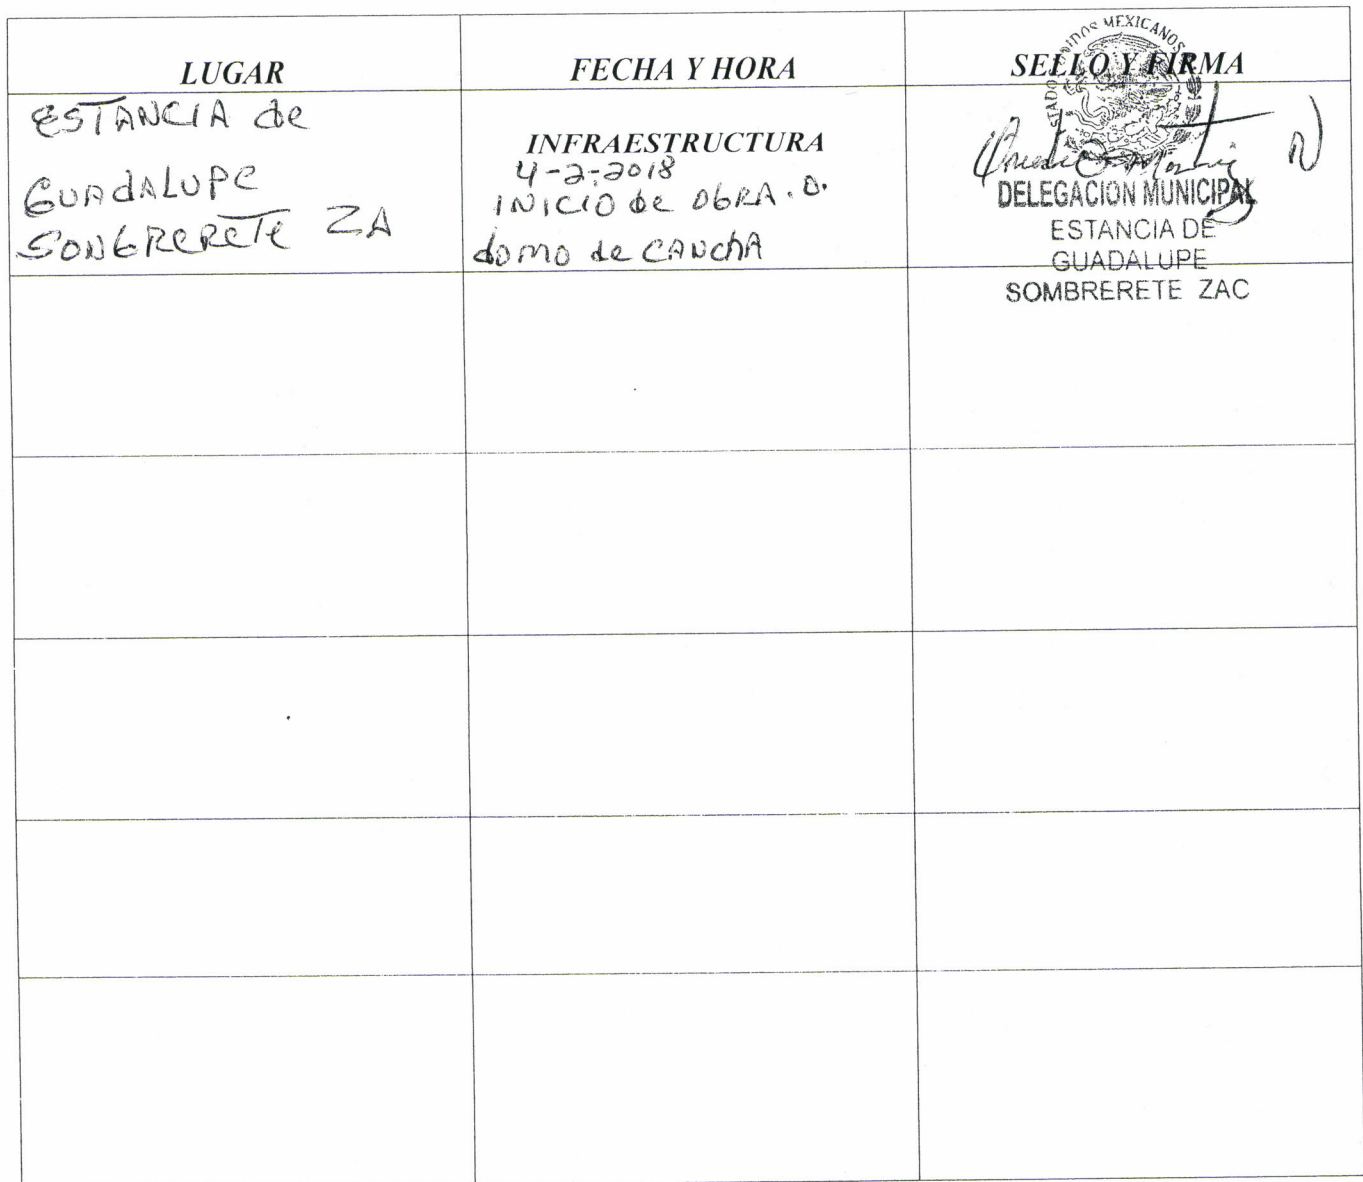 LUGAR
FECHA Y HORA
SELLO Y FIRMA
ESTANCIA de
GUADALUPE
SONBRERETE ZA
INFRAESTRUCTURA
4-2-2018
INICIO de OBRA. D.
domo de CANCHA
MEXICANOS
DELEGACION MUNICIPAL
ESTANCIA DE
GUADALUPE
SOMBRERETE ZAC